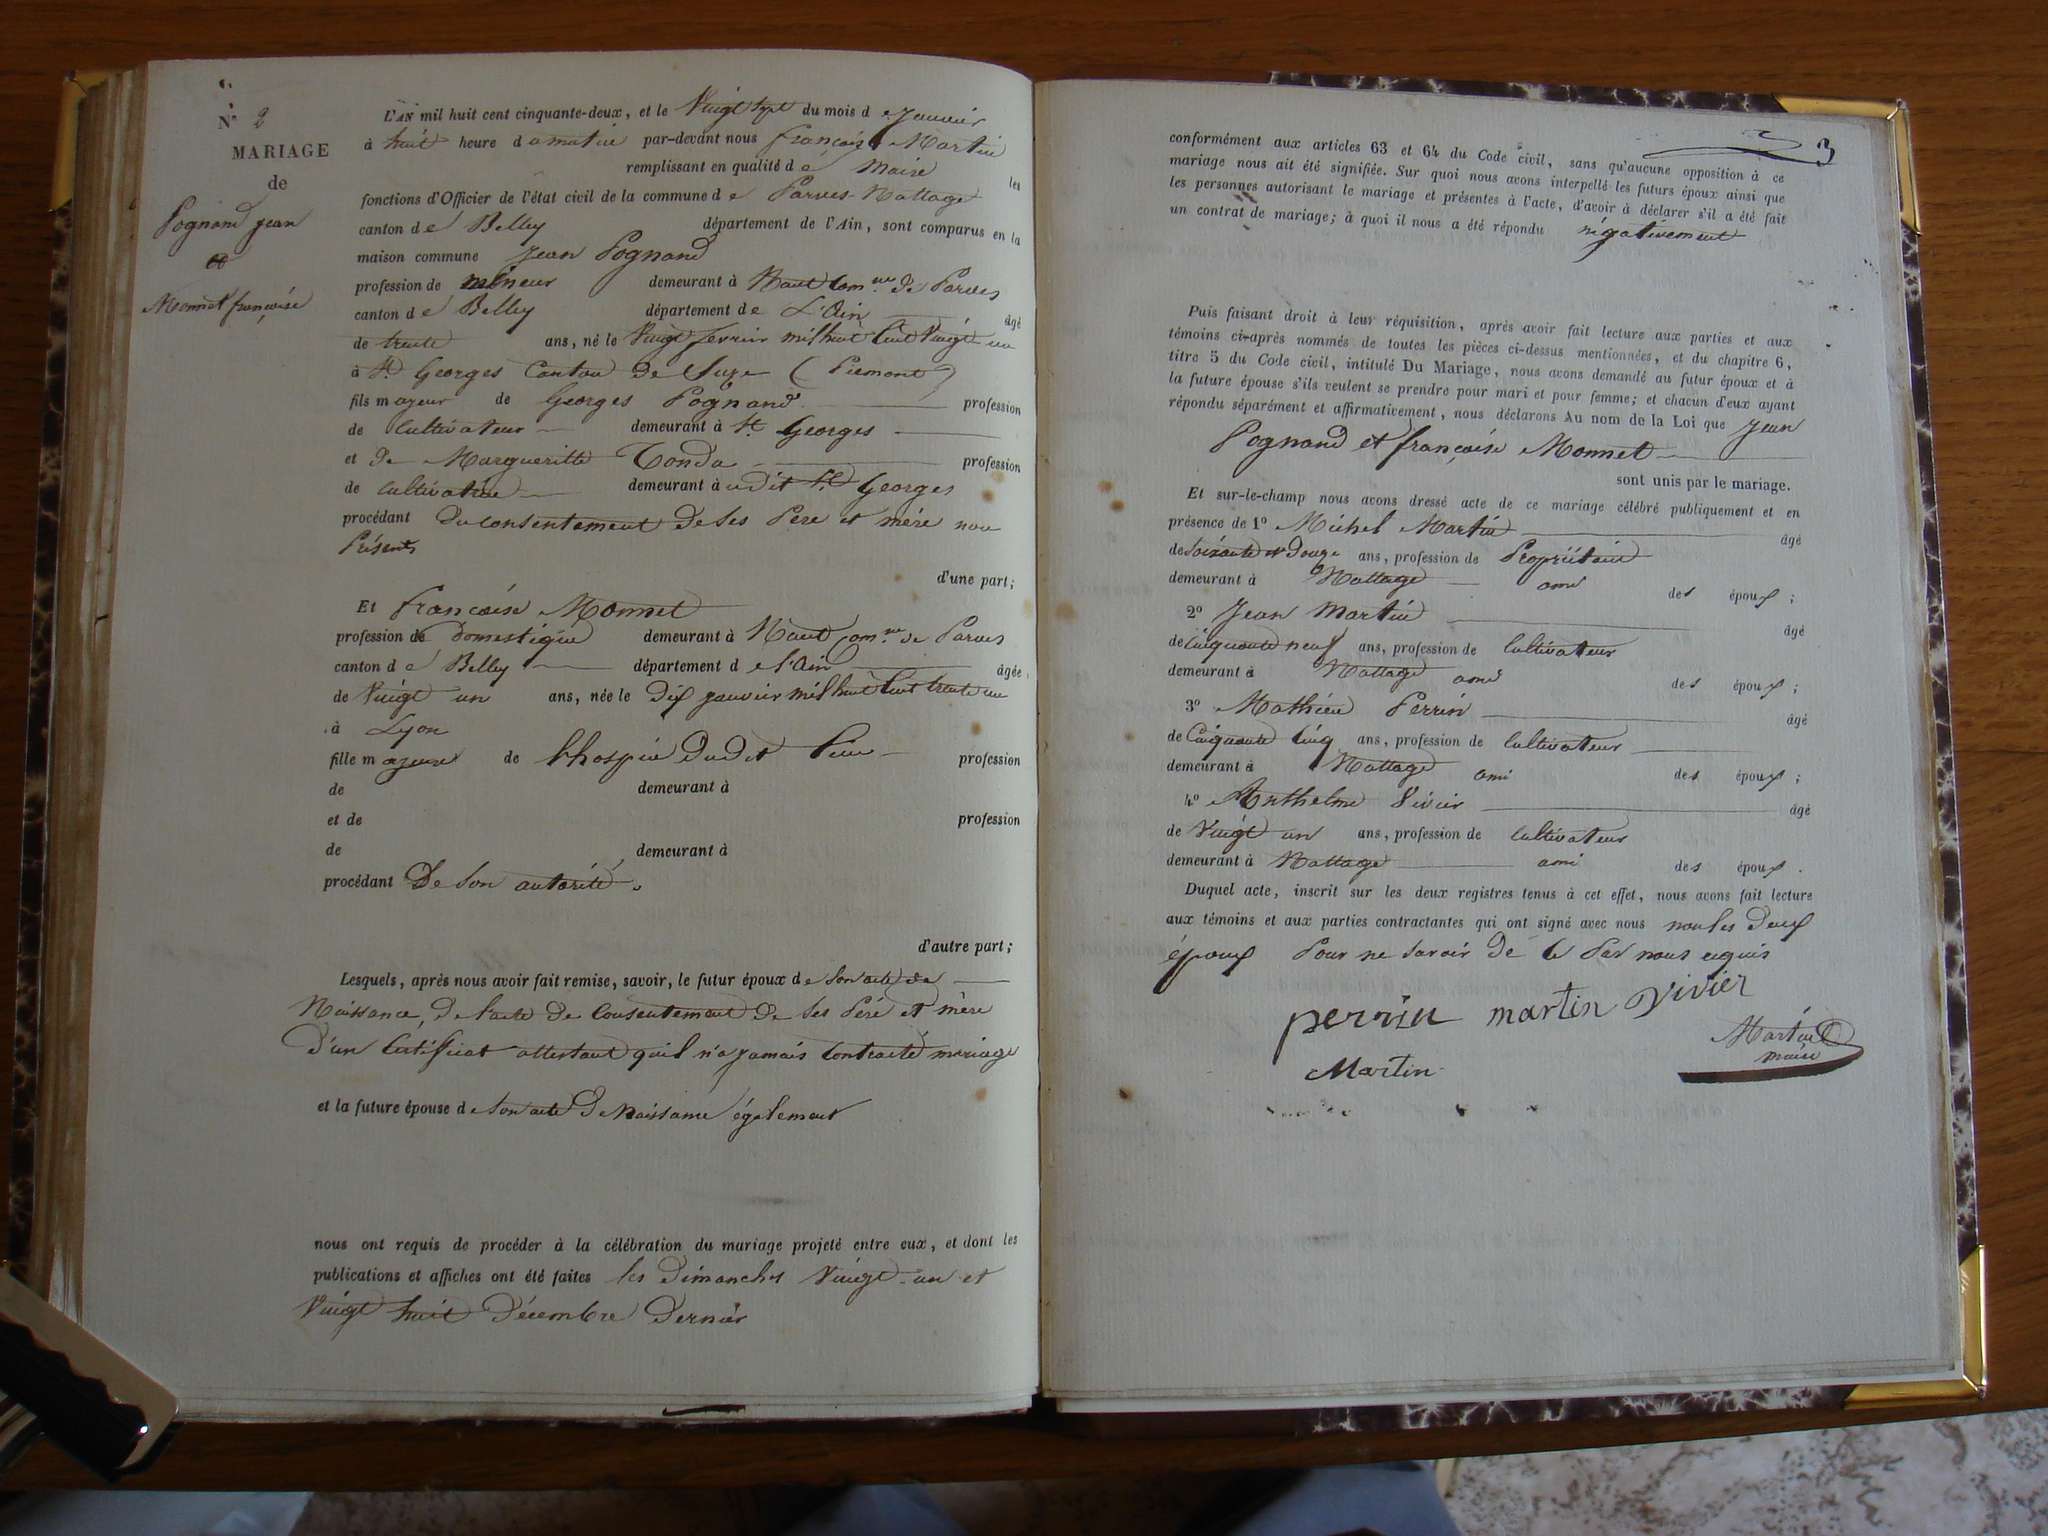 N° 2
MARIAGE
de
Pognand jean
et
Monnet françoise
L'AN mil huit cent cinquante-deux, et le Vingt sept du mois d e Janvier
à huit heure d u matin par-devant nous françois Martin
remplissant en qualité d e Maire les
fonctions d'Officier de l'état civil de la commune d e Parves-Nattage
canton d e Belley département de l'Ain, sont comparus en la
maison commune Jean Pognand
profession de mineur demeurant à Nant Com.ne de Parves
canton d e Belley département d e L'Ain âgé
de trente ans, né le Vingt fevrier mil huit Cent Vingt un
à St. Georges Canton de Suze (Piemont)
fils majeur de Georges Pognand profession
de Cultivateur demeurant à St. Georges
et de Margueritte Tonda profession
de cultivatrice demeurant à udit St. Georges
procédant du consentement de ses Père et mère non
Présents
d'une part;
Et françoise Monnet
profession de Domestique demeurant à Nant Com.ne de Parves
canton d e Belley département d e l'Ain âgée
de Vingt un ans, née le Dix janvier mil huit Cent trente un
à Lyon
fille majeure de l'hospice dudit lieu profession
de demeurant à
et de profession
de demeurant à
procédant De son autorité
d'autre part;
Lesquels, après nous avoir fait remise, savoir, le futur époux d e son acte de
Naissance, de l'acte de Consentement de ses Père et mère
d'un Certificat attestant qu'il n'a jamais contracté mariage
et la future épouse d e son acte de Naissance également
nous ont requis de procéder à la célébration du mariage projeté entre eux, et dont les
publications et affiches ont été faites les dimanches Vingt-un et
Vingt huit Décembre Dernier
3
conformément aux articles 63 et 64 du Code civil, sans qu'aucune opposition à ce
mariage nous ait été signifiée. Sur quoi nous avons interpellé les futurs époux ainsi que
les personnes autorisant le mariage et présentes à l'acte, d'avoir à déclarer s'il a été fait
un contrat de mariage; à quoi il nous a été répondu négativement
Puis faisant droit à leur réquisition, après avoir fait lecture aux parties et aux
témoins ci-après nommés de toutes les pièces ci-dessus mentionnées, et du chapitre 6,
titre 5 du Code civil, intitulé Du Mariage, nous avons demandé au futur époux et à
la future épouse s'ils veulent se prendre pour mari et pour femme; et chacun d'eux ayant
répondu séparément et affirmativement, nous déclarons Au nom de la Loi que Jean
Pognand et françoise Monnet
sont unis par le mariage.
Et sur-le-champ nous avons dressé acte de ce mariage célébré publiquement et en
présence de 1° Michel Martin âgé
de soixante et Douze ans, profession de Propriétaire
demeurant à Nattage ami des époux;
2° Jean Martin âgé
de Cinquante neuf ans, profession de Cultivateur
demeurant à Nattage ami des époux;
3° Mathieu Perrin âgé
de Cinquante Cinq ans, profession de Cultivateur
demeurant à Nattage ami des époux;
4° Anthelme Vivier âgé
de Vingt un ans, profession de Cultivateur
demeurant à Nattage ami des époux.
Duquel acte, inscrit sur les deux registres tenus à cet effet, nous avons fait lecture
aux témoins et aux parties contractantes qui ont signé avec nous non les deux
époux Pour ne savoir de ce Par nous requis
perrin martin Vivier
Martin
Martin
maire